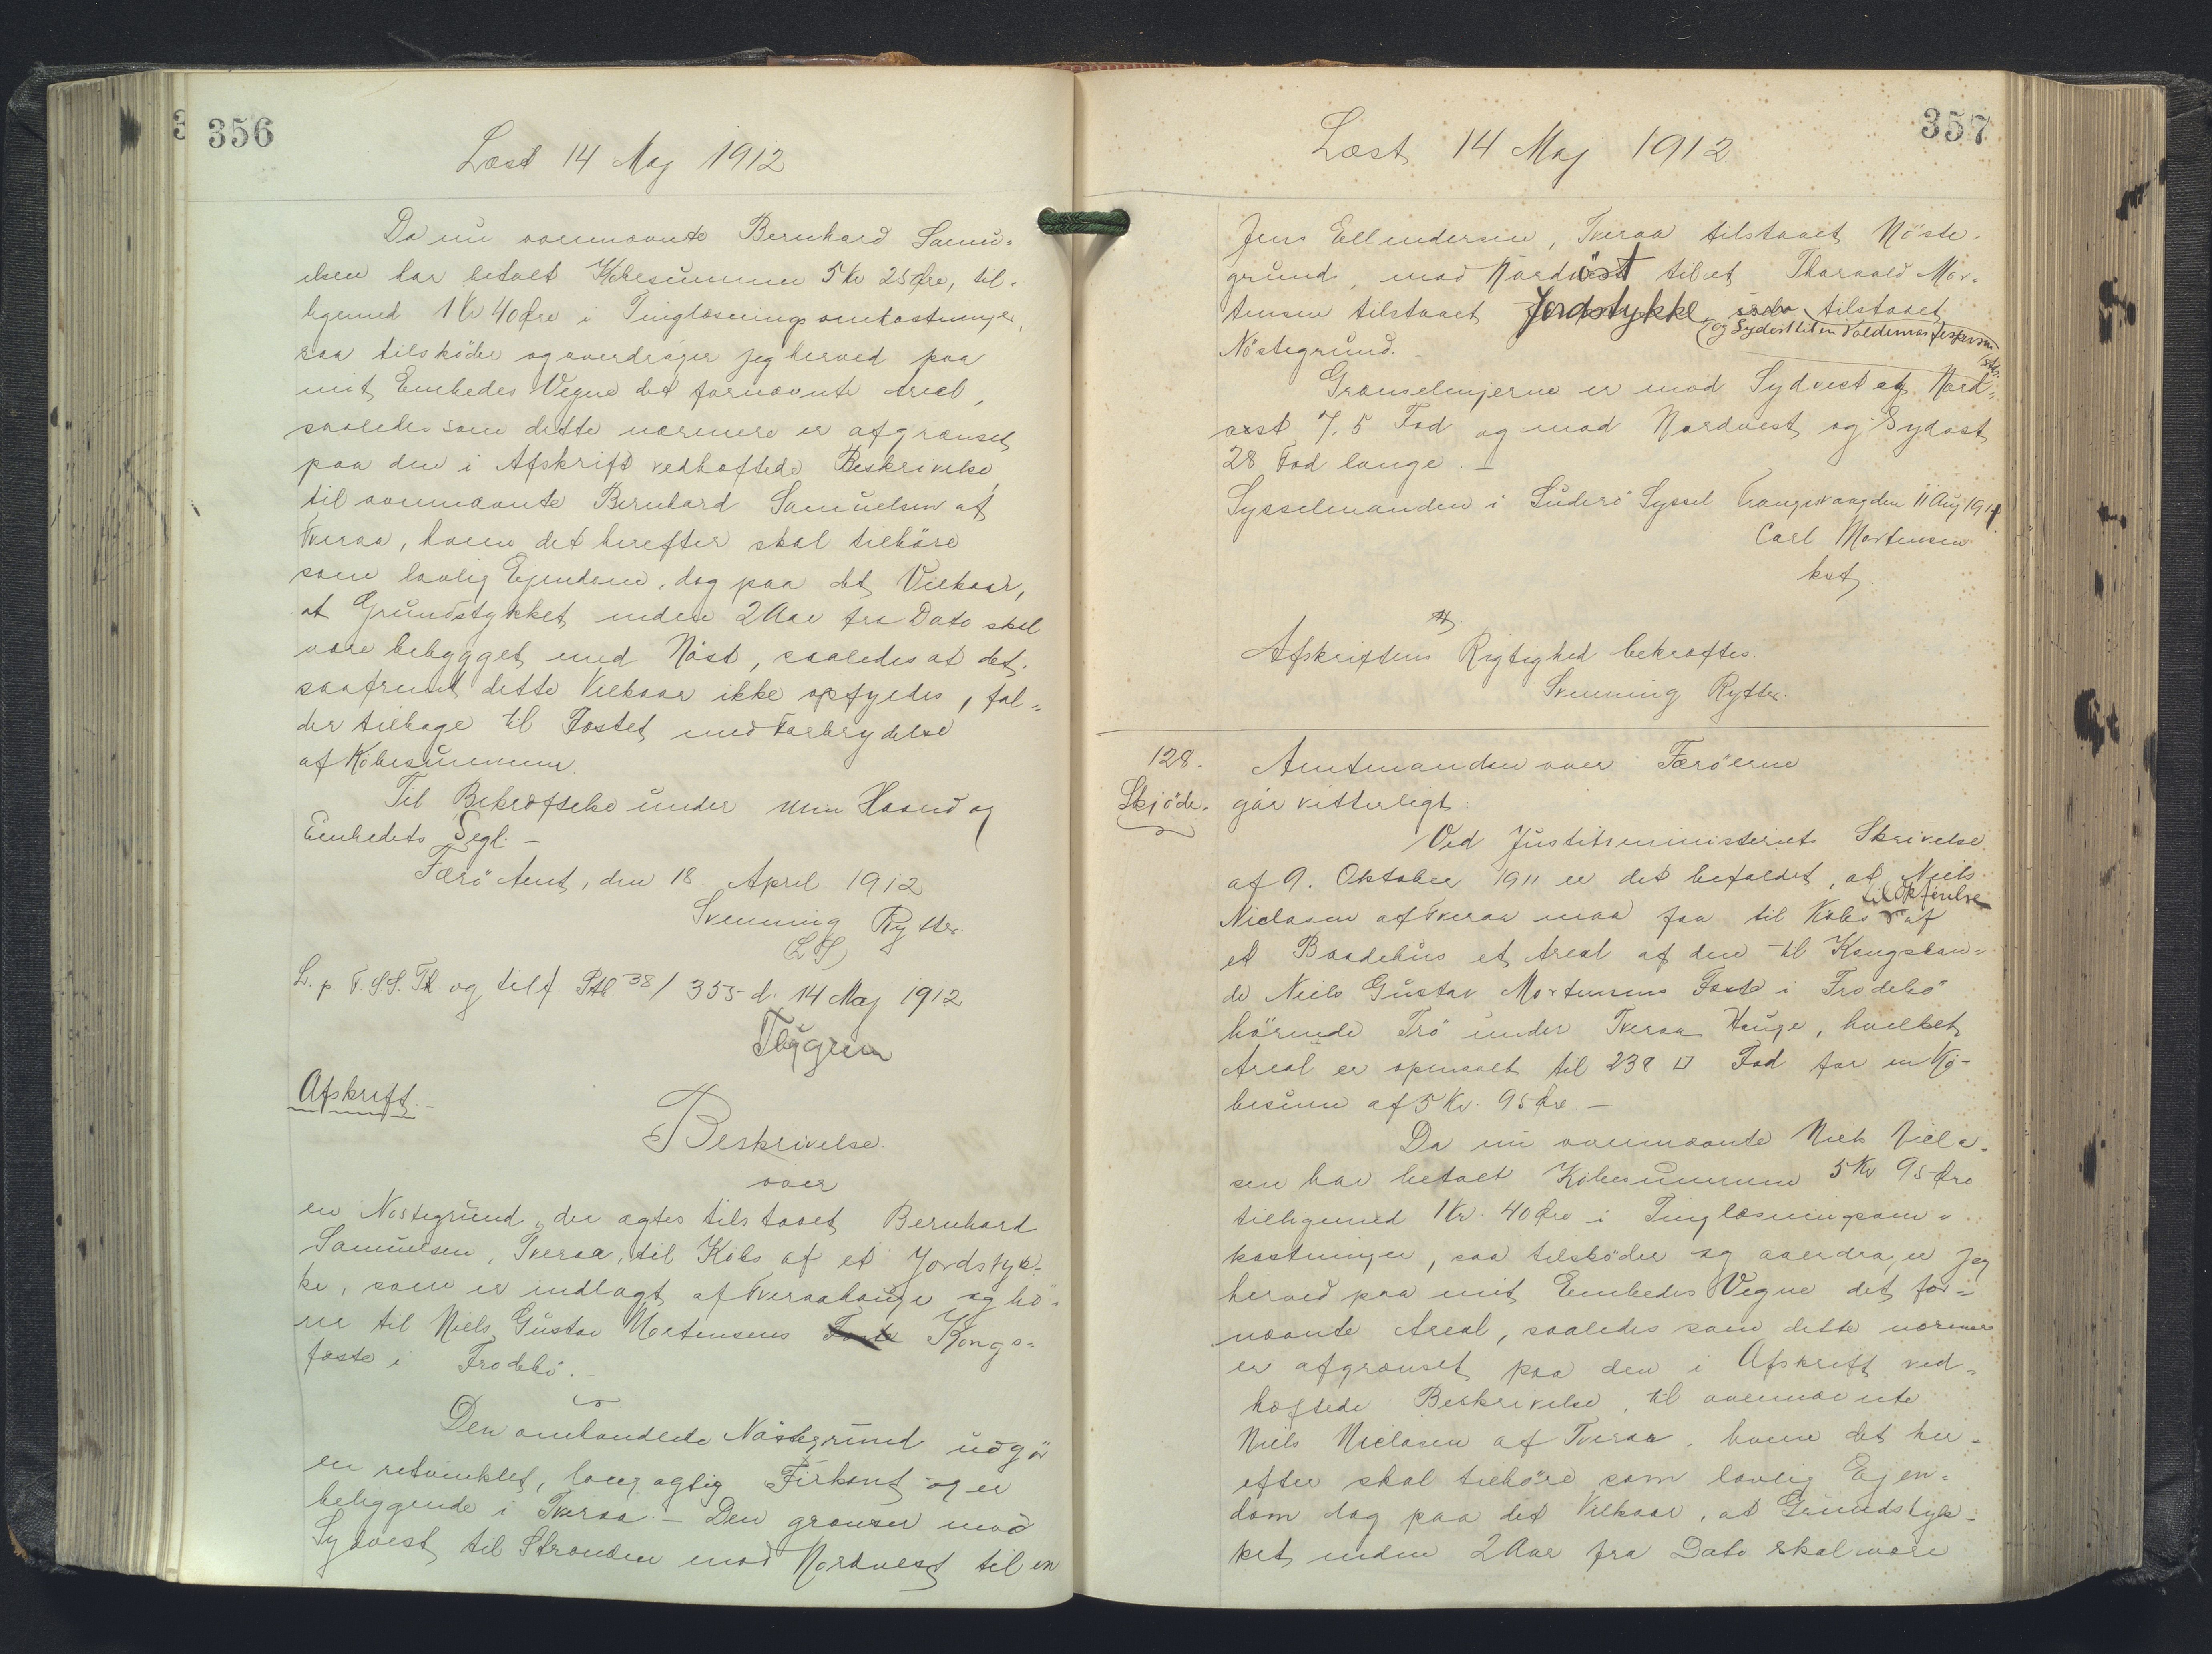 356
Læst 14 Maj 1912
Da nu ovennævnte Bernhard Samu-
elsen har betalt Købesummen 5 Kr 25 Øre, til-
ligemed 1 Kr 40 Øre i Tinglæsningsomkostninger,
saa tilskøder og overdrager jeg herved paa
mit Embedes Vegne det fornævnte Areal,
saaledes som dette nærmere er afgrænset
paa den i Afskrift vedhæftede Beskrivelse,
til ovennævnte Bernhard Samuelsen af
Tveraa, hvem det herefter skal tilhöre
som lovlig Ejendom, dog paa det Vilkaar,
at Grundstykket inden 2 Aar fra Dato skal
være bebygget med Nöst, saaledes at det,
saafremt dette Vilkaar ikke opfyldes, fal-
der tilbage til Fæstet med Forbrydelse
af Købesummen.
Til Bekræftelse under min Haand og
Embedets Segl. -
Færö Amt, den 18. April 1912
Svenning Rytter.
(LS)
L. p. F. SS. Th og tilf. Prtl. 38/355 d. 14 Maj 1912
Thygren
Afskrift. -
Beskrivelse
over
en Nöstegrund, der agtes tilstaaet Bernhard
Samuelsen, Tveraa, til Köbs af et Jordstyk-
ke, som er indlagt af Tveraahauge og hö-
rer til Niels Gustav Mortensens Fæste Konge-
fæste i Frodebö. -
Den omhandlede Nöstegrund udgör
en retvinklet, langagtig Firkant og er
beliggende i Tveraa. - Den grænser mod
Sydvest til Stranden mod Nordvest til en
357
Læst 14 Maj 1912
Jens Ellendersen, Tveraa tilstaaet Nöste-
grund, mod Nordöst til et Thorvald Mor-
tensen tilstaaet Jordstykke tilstaaet
og Sydöst til en Valdemar Jespersen
Nöstegrund. -
Grænselinjerne er mod Sydvest og Nord-
øst 7,5 Fod og mod Nordvest og Sydøst
28 Fod lange. -
Sysselmanden i Suderö Syssel Trangisvaag den 11 Aug 1911
Carl Mortensen
kst.
Afskriftens Rigtighed bekræftes
Svenning Rytter.
128. Amtmanden over Færöerne
Skjöde. gör vitterligt:
Ved Justitsministeriets Skrivelse
af 9. Oktober 1911 er det befaldet, at Niels
til Opførelse
Niclasen af Tveraa maa faa til Købs af
et Baadehus et Areal af den til Kongsbon-
de Niels Gustav Mortensens Fæste i Frodebö
hörende Trö under Tveraa Hauge, hvilket
Areal er opmaalt til 238 □ Fod for en Kö-
besum af 5 Kr. 95 Øre. -
Da nu ovennævnte Niels Nicla-
sen har betalt Købesummen 5 Kr 95 Øre
tilligemed 1 Kr. 40 Øre i Tinglæsningsom-
kostninger, saa tilskøder og overdrager jeg
herved paa mit Embedes Vegne det for-
nævnte Areal, saaledes som dette nærmere
er afgrænset paa den i Afskrift ved-
hæftede Beskrivelse, til ovennævnte
Niels Niclasen af Tveraa, hvem det her-
efter skal tilhöre som lovlig Ejen-
dom dog paa det Vilkaar, at Grundstyk-
ket inden 2 Aar fra Dato skal være